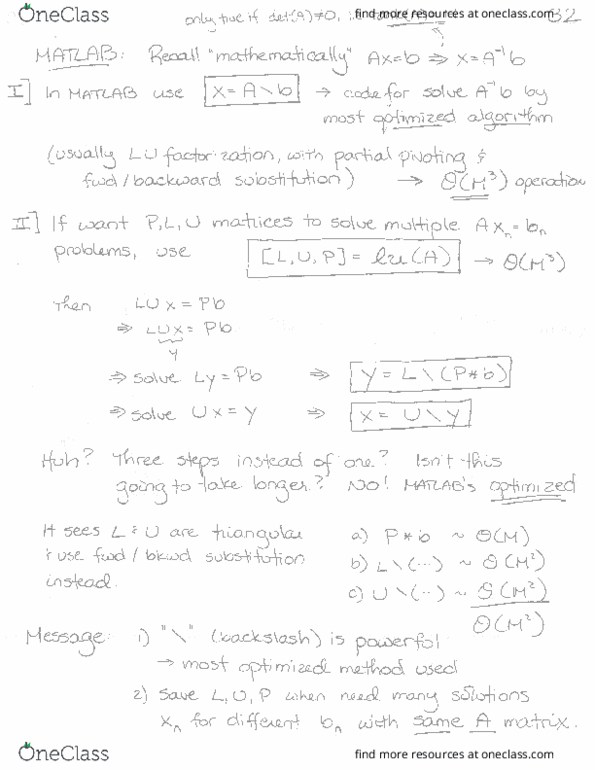 OneClass
find more resources at oneclass.com
only true if det(A)≠0, 32
MATLAB: Recall "mathematically" Ax=b ⇒ x=A⁻¹b
I] In MATLAB use x=A\b → code for solve A⁻¹b by
most optimized algorithm
(usually LU factorization, with partial pivoting &
fwd/backward substitution) → O(M³) operation
II] If want P,L,U matrices to solve multiple Axₙ=bₙ
problems, use [L,U,P]=lu(A) → O(M³)
Then LUx=Pb
⇒ LUx=Pb
y
⇒ solve Ly=Pb ⇒ y=L\(P*b)
⇒ solve Ux=y ⇒ x=U\y
Huh? Three steps instead of one? Isn't this
going to take longer? NO! MATLAB's optimized
It sees L & U are triangular a) P*b ~ O(M)
& use fwd/bkwd substitution b) L\(...) ~ O(M²)
instead. c) U\(...) ~ O(M²)
O(M²)
Message: 1) "\" (backslash) is powerful
→ most optimized method used
2) Save L,U,P when need many solutions
xₙ for different bₙ with same A matrix.
OneClass
find more resources at oneclass.com